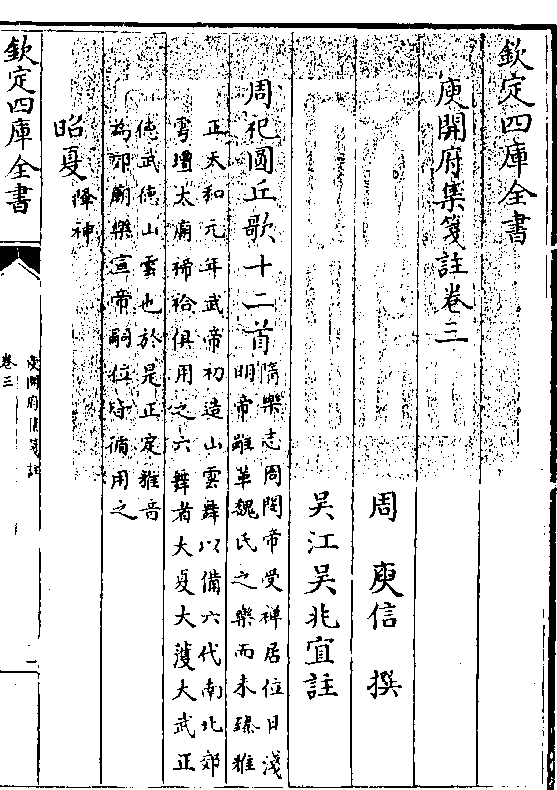 欽定四庫全書
庾開府集箋註卷三
周 庾信 撰
吳江吳兆宜註
周祀圜丘歌十二首隋樂志周閔帝受禪居位日淺
明帝雖革魏氏之樂而未臻雅
正天和元年武帝初造山雲舞以備六代南北郊
雩壇太廟禘祫俱用之六舞者大夏大濩大武正
德武德山雲也於是正定雅音
為郊廟樂宣帝嗣位皆循用之
昭夏降神
欽定四庫全書
庾開府集箋註
卷三
一